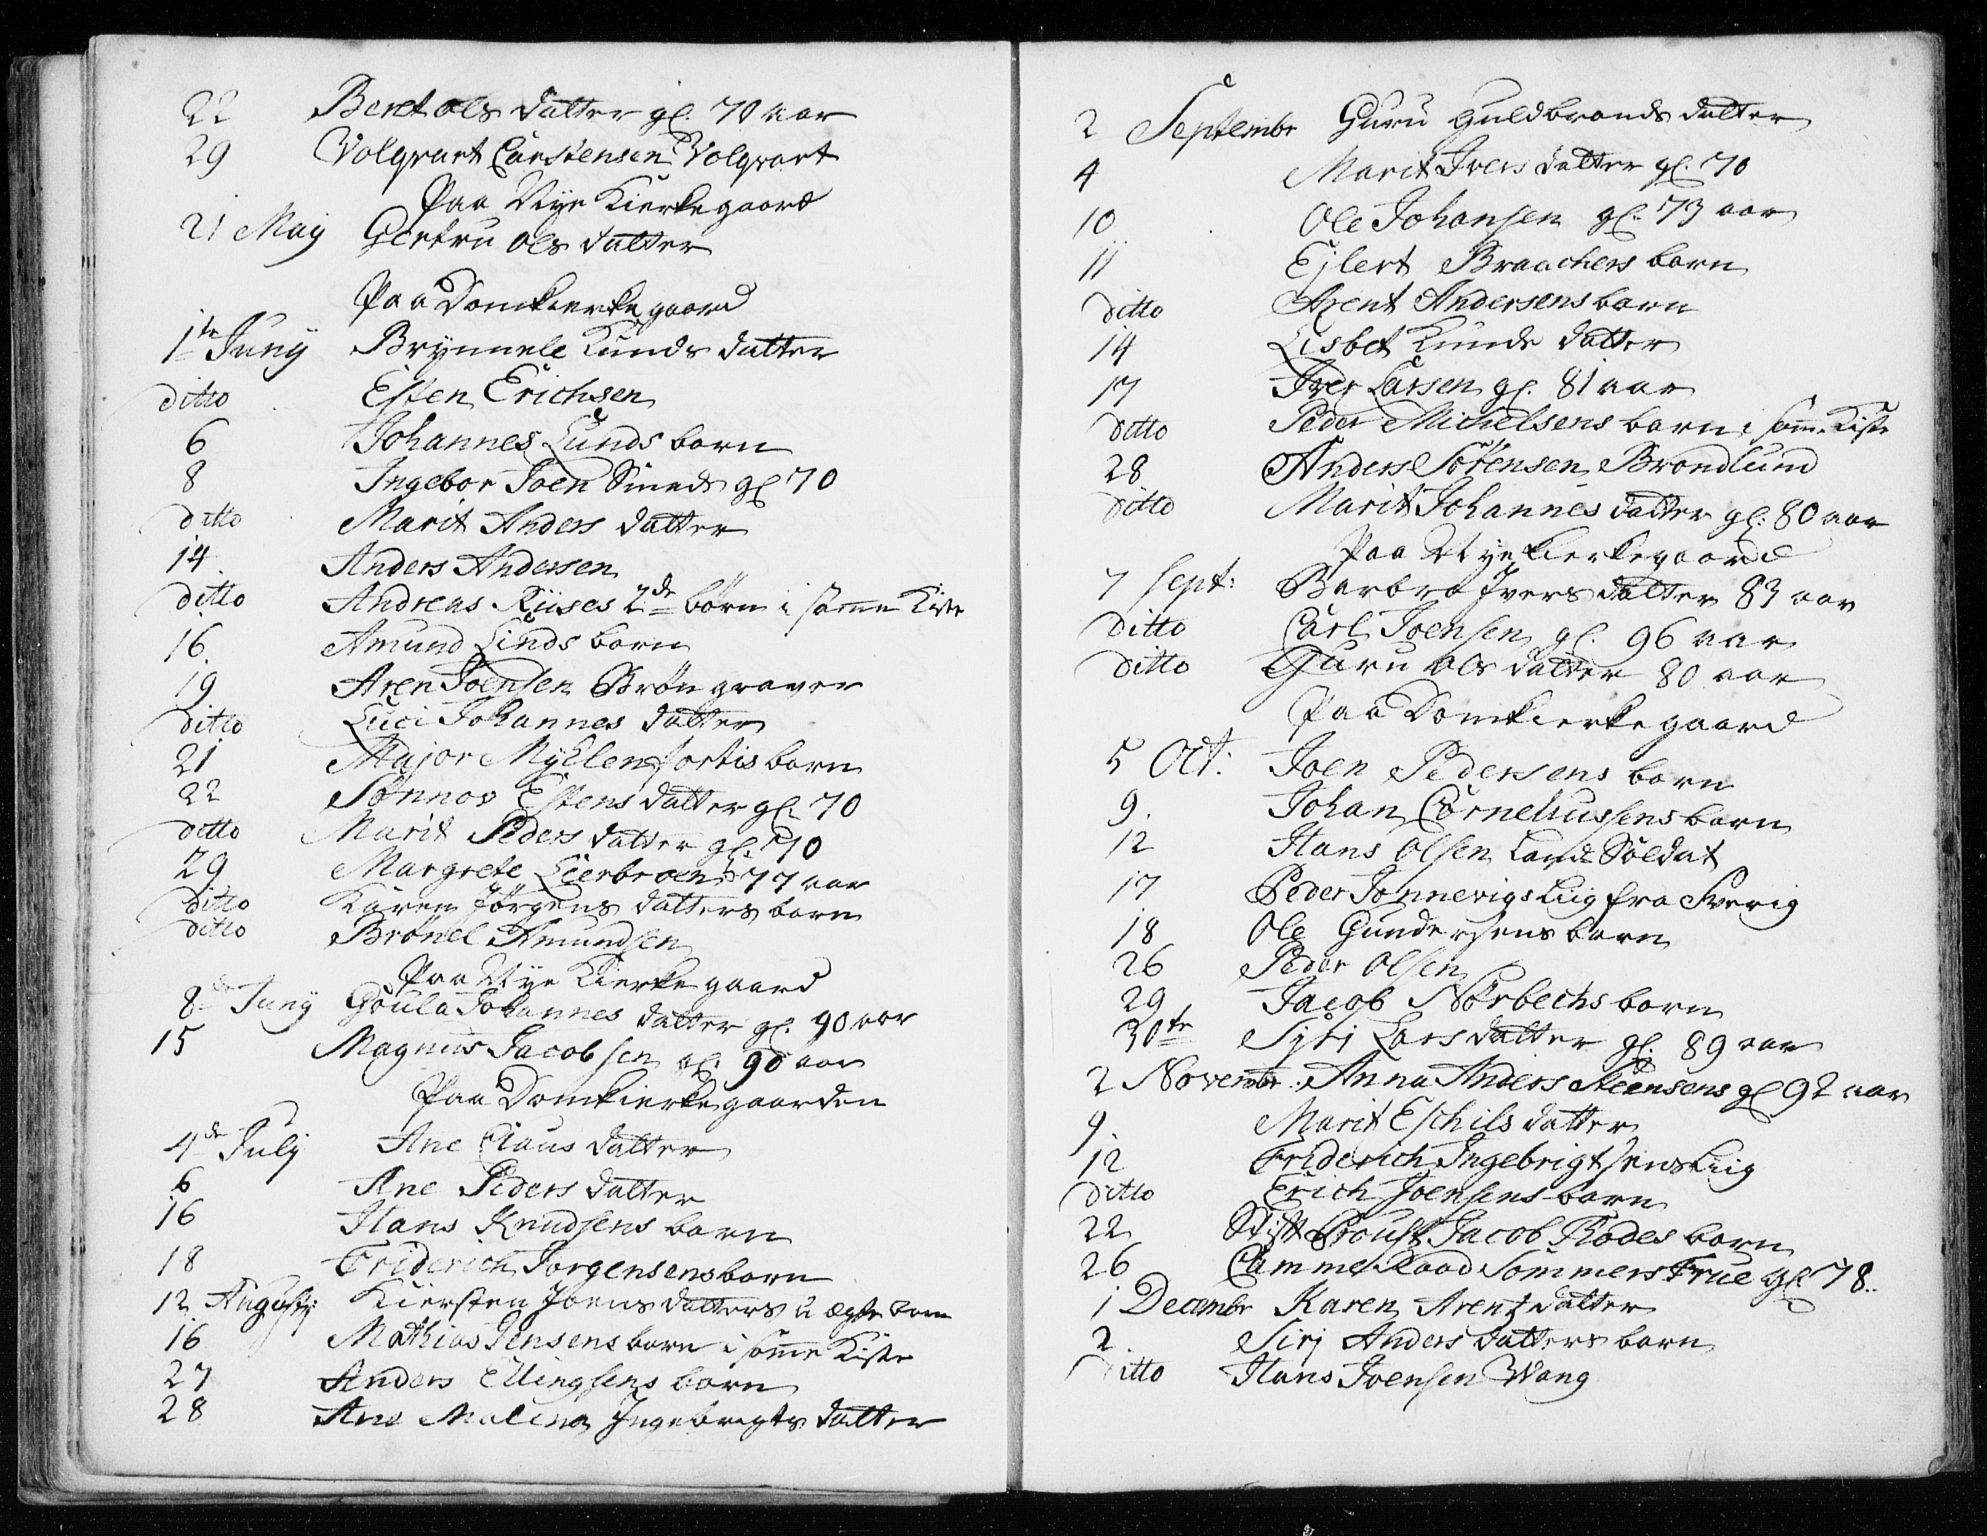 22 Beret ols datter gl. 70 aar
29 Volqvart Carstensen Volqvart
Paa Nye Kierkegaard
21 May Gertru ols datter
Paa Domkierke gaard
1te Juny Brynnele Kunds datter
ditto Esten Erichsen
6 Johannes Lunds barn
8 Ingebor Joen Smeds gl 70
ditto Marit Anders datter
14 Anders Andersen
ditto Andreas Riises 2de børn i samme Kiste
16 Amund Linds barn
19 Aren Joensen Brøn graver
ditto Luci Johannes datter
21 Major Mÿllenfortis barn
22 Sønnov Estens datter gl 70
ditto Marit Peders datter gl. 70
29 Margrete Leerbroens 77 aar
ditto Karen Jörgens datters barn
ditto Brønel Amundsen
Paa Nye Kierke gaard
8de Juny Goula Johannes datter gl. 90 aar
15 Magnus Jacobsen gl. 90 aar
Paa Domkierke gaarden
4de July Ane Claus datter
6 Ane Peders datter
16 Hans Knudsens barn
18 Friderich Jorgensens barn
12 Augusti Kiersten Joens datters u ægte barn
16 Mathias Jensens barn i samme Kiste
27 Anders Ellingsens barn
28 Ane Malena Ingebrigts datter
2 Septembr Guru Guldbrands datter
4 Marit Ivers datter gl. 70
10 Ole Johansen gl. 73 aar
11 Ejlert Braachers barn
ditto Arent Andersens barn
14 Lisbet Kunds datter
17 Iver Larsen gl. 81 aar
ditto Peder Michelsens barn i samme Kiste
28 Anders Sörensen Brondlund
ditto Marit Johannes datter gl: 80 aar
Paa Nye Kierkegaard
7 Sept: Barbra Ivers datter 83 aar
ditto Carl Joensen gl. 96 aar
ditto Guru ols datter 80 aar
Paa Domkierke gaard
5 Oct: Joen Pedersens barn
9. Johan Corneliussens barn
12 Hans Olsen Land Soldat
17 Peder Jonnevigs Liig fra Sverig
18 Ole Gundersens barn
26 Peder Olsen
29 Jacob Nørbechs barn
30te Syrj Lars datter gl. 89 aar
2 Novembr: Anna Anders Steensens gl 92 aar
9. Marit Eschils datter
12 Friderich Ingebrigtsens Liig
ditto Erich Joensens barn
22 Stift Proust Jacob Rodes barn
26 Camme Raad Sommers Frue gl 78.
1 Decembr Karen Arentz datter
2 Sirj Anders datters barn
ditto Hans Joensen Wang